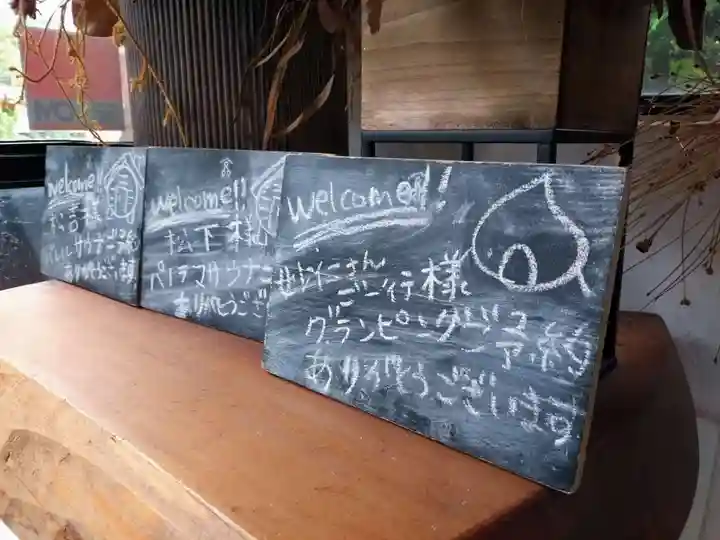 welcome!!
様
バレルサウナご予約
ありがとうございます
welcome!!
松下 様
パノラマサウナご
ありがとうござ
welcome!!
せとくにさん
ご一行様
グランピングご予約
ありがとうございます